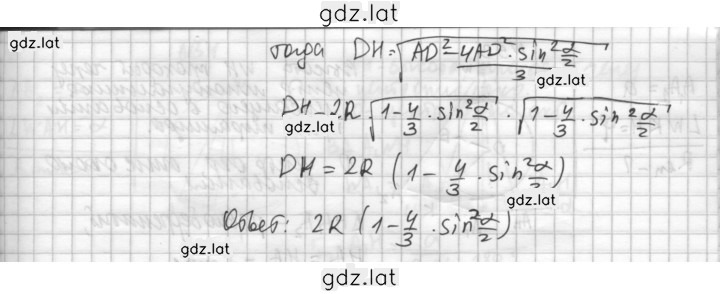 gdz.lat
gdz.lat
тогда DH = √(AD² - 4AD² · sin² α/2 / 3)
gdz.lat
DH = 2R √(1 - 4/3 · sin² α/2) · √(1 - 4/3 · sin² α/2)
gdz.lat
DH = 2R (1 - 4/3 · sin² α/2)
Ответ: 2R (1 - 4/3 · sin² α/2)
gdz.lat
gdz.lat